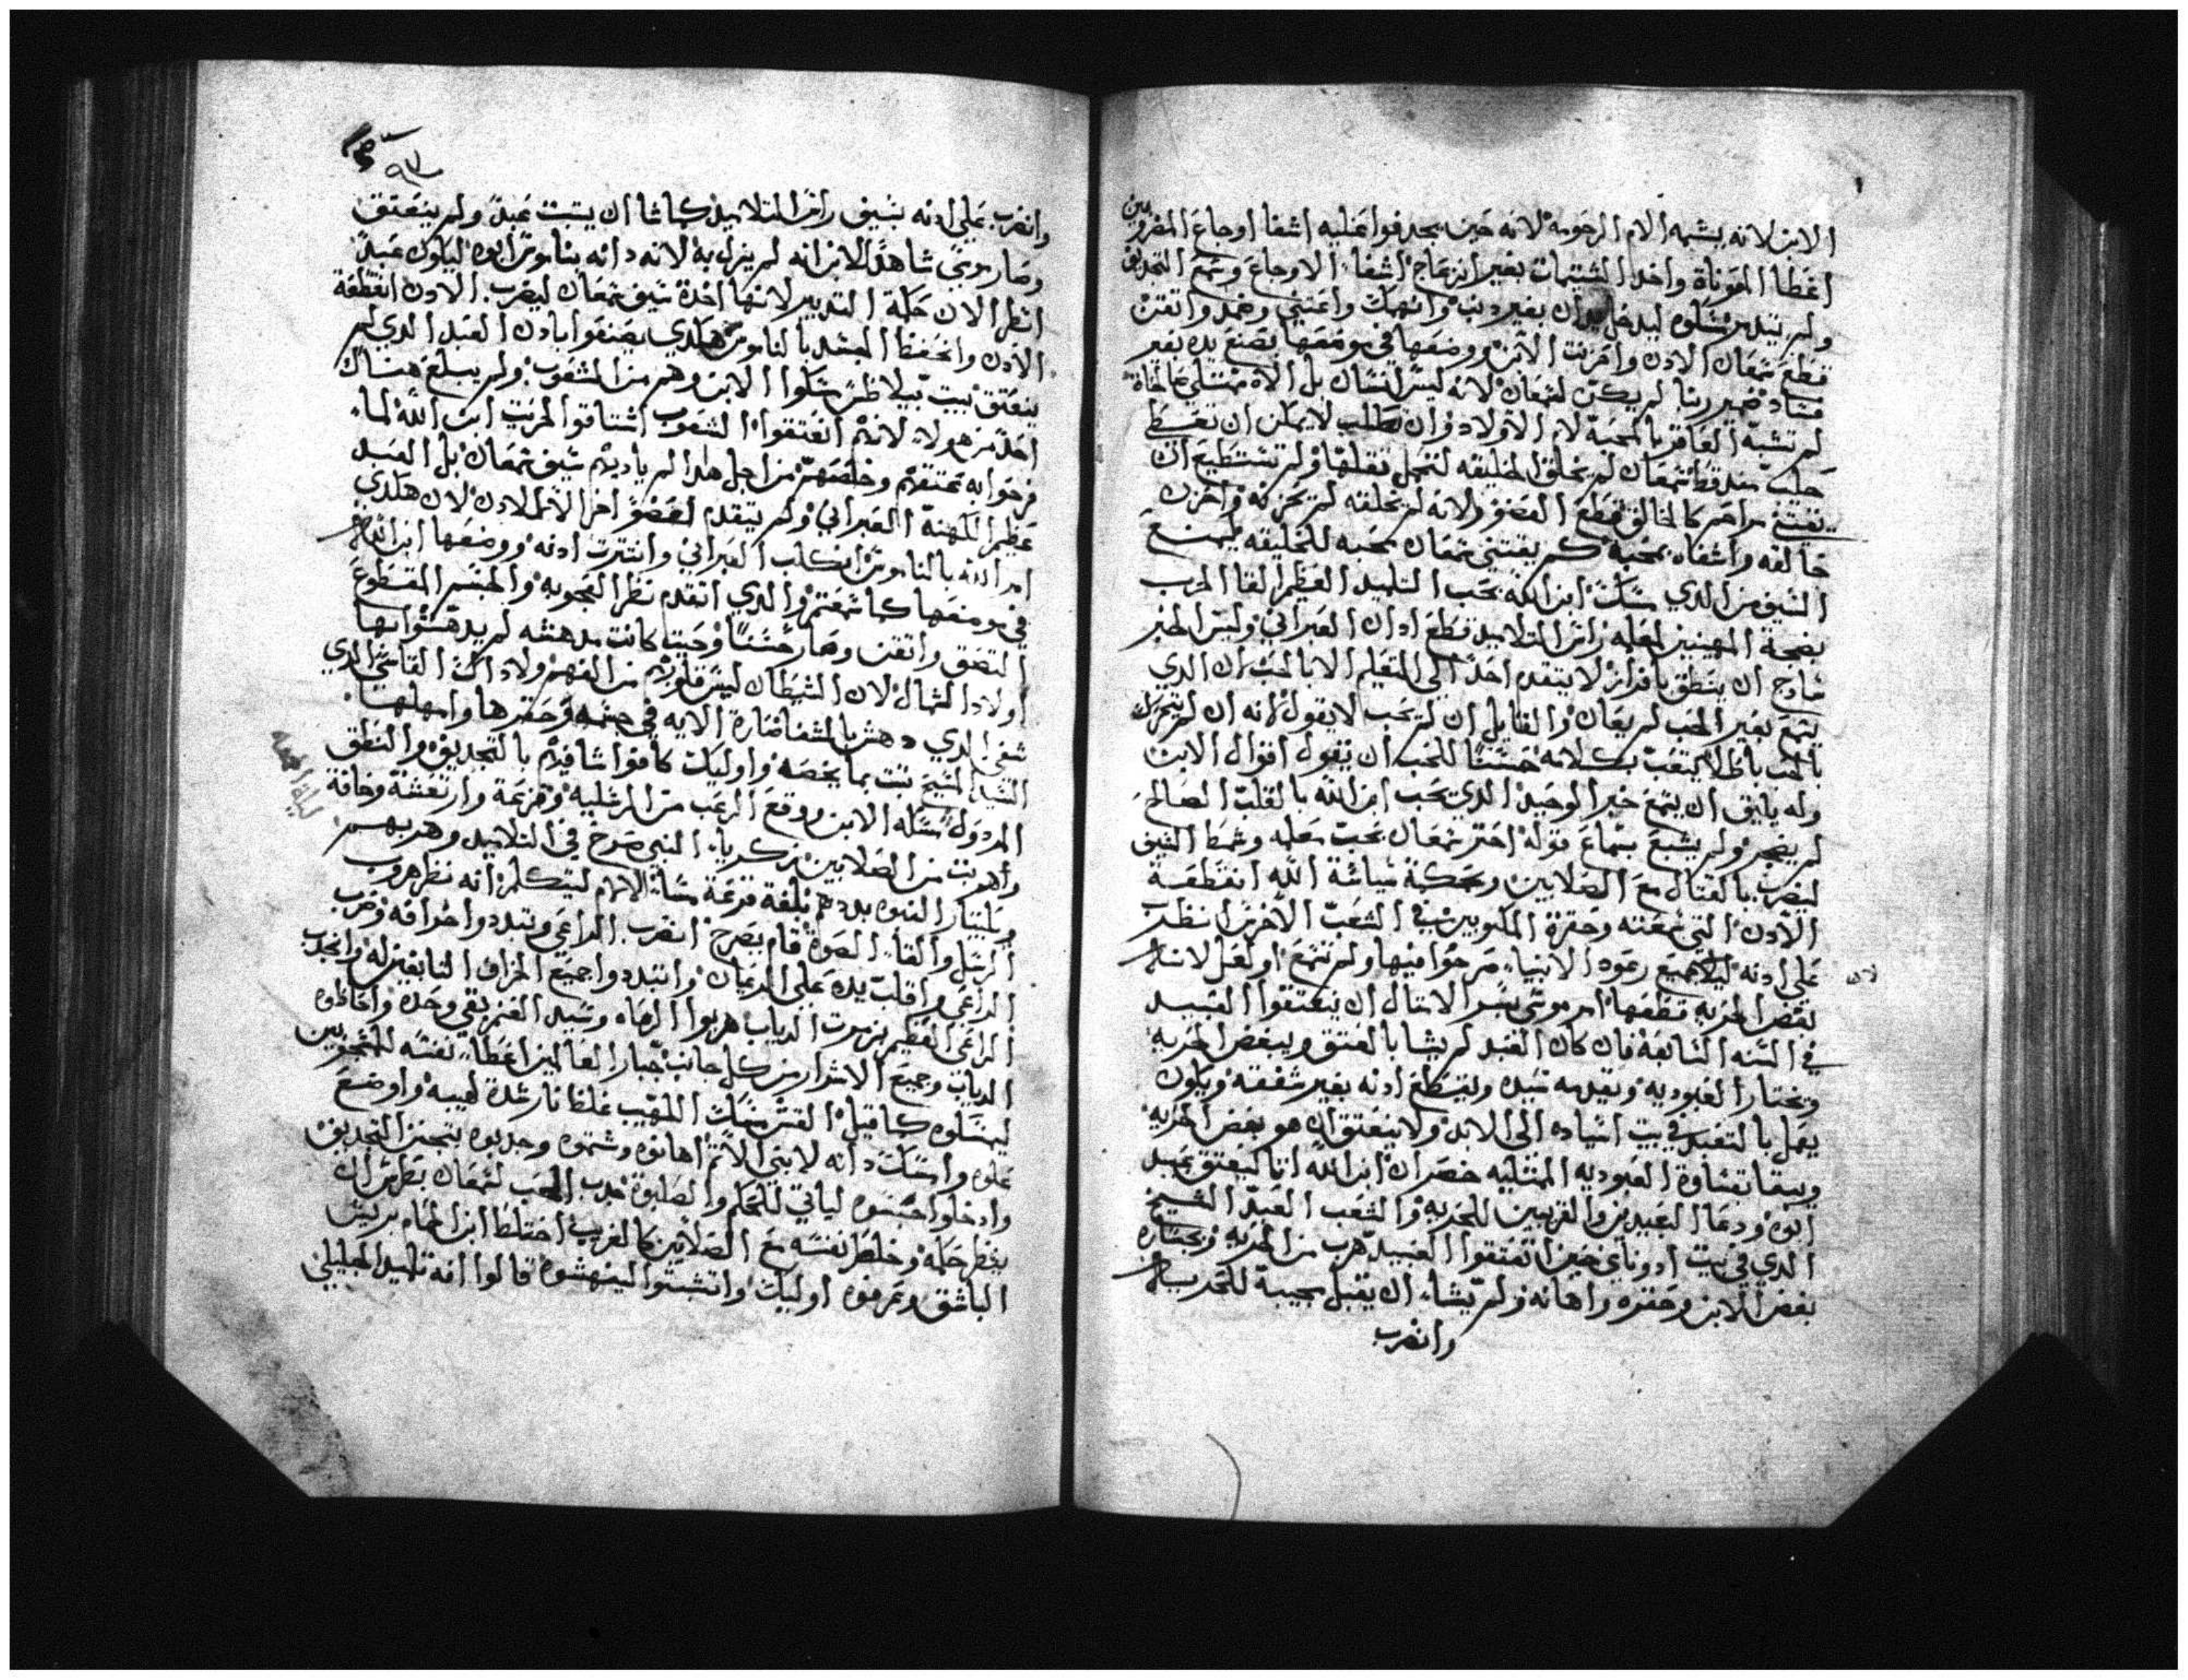 الابن لانه يشبه الام الرحومة لانه حين يجدفوا عليه اشفا اوجاع المضرورين
اعطا المعوناة واخد الشتيمات بغير انزعاج اشفا الاوجاع وسمع التجديف
ولم يتدمر سلوه ليدخل ان بغير دنب وانهمك واعتني وضمد واتقن
قطع شمعان الادن واحزنت الابن ووضعها في موضعها بصنع يده بغير
فساد ضمير ربنا لم يكن لشمعان لانه ليس انسان بل الاه ممتلي
لم تشبه العاقر بالمحبة لام الاولاد وان تطلب لا يمكن ان تعطي
حليب شمعان لم يخلق الخليقه لتحمل تقلها ولم تستطيع ان
يعتني مراحم كالخالق قطع العضو ولانه لم يخلقه لم يحزنه واحزن
خالقه واشفاه بمحبة كم يعتني شمعان بمحبه للخليقه ليمنع
السيف من الدي سكت ابن الله بحب التلميد العظم القا الحرب
بضجة المهينين لمعلمه راس التلاميد قطع ادان العبراني وليس الخبر
سادج ان ينطق بافراز لا يتقدم احد الي التعليم الا بالحب ان الدي
يسمع بغير الحب لم يعان والقايل ان لم يحب لا يقول لانه ان لم يتحرك
بالحب باطلا يتعب بكلامه حسنا للحب ان يقول اقوال الابن
وله يليق ان يسمع خبر الوحيد الدي يحب ابن الله بالقلب الصالح
لم يضجر ولم يشبع بسماع قوله احتر شمعان بحب معلمه وشمط السيف
ليضرب بالقتال مع الصلابين وبحكمة سياسة الله انقطعت
الادن التي سمعته وحقرة المكتوبين في الشعب الاخرس انظر
علي ادنه ليلا جميع رعود الانبيا صرخوا فيها ولم تسمع اوقبل لانه
بغض الحريه قطعها امر موسي بسر الامتال ان ينعتقوا العبيد
في السنه السابعة فان كان العبد لم يشا بالعتق ويبغض الحريه
ويختار العبوديه ويقدمه سيده وليقطع ادنه بغير شفقه ويكون
يعمل بالتعبد في بيت اسياده الي الابد ولا ينعتق ان هو بغض الحريه
ويبقا تقساوة العبوديه الممتليه خصران ابن الله اتا ليعتق عبيد
ابوه ودعا البعيدين والقريبين للحريه والشعب العبد الشيخ
الدي في بيت ادوناي حين انعتقوا العبيد هرب من الحريه وبجساره
بغض الابن وحقره واهانه ولم يشاء ان يقبل بمجيبه للحريه
وانضرب
وانضرب علي ادنه بسيف راس التلاميد كما شا ان يتبت عبد ولم ينعتق
وصار موسي شاهد الابن انه لم ينزل به لانه دانه بناموس ابوه ليكون عبد
انظر الان حكمة التدبير لانها اخدة سيف شمعان ليضرب الادن انقطعة
الادن وانحفظ الجسد بالناموس هكدي يصنعوا بادن العبد الدي لم
ينعتق بيت بيلاطس سكوا الابن وهم من الشعوب ولم يبلغ هناك
احد من هولاء لانهم انعتقوا الشعوب اشتاقوا لحريت ابن الله لما
فرحوا به عتقهم وخلصهم من اجل هدا لم ياديهم سيف شمعان بل العبد
عظم الكهنة العبراني ولم يتقدم لعضو اخر الا للادن لان هكدي
امر الله بالناموس انكلب العبراني وانترت ادنه ووضعها ابن الله
في موضعها كما سمعتم والدي اتقدم نظر العجوبه والجسم المقطوع
التصق واتقن وصار حسنا وحيتا كانت مدهشه لم يدهشوا بها
اولاد الشمال لان الشيطان ليس قلوبهم من الفهم ولا داك القاسي الدي
شفي الدي دهش بالشفا ضارة الايه في جسمه وحقرها وامهلها
السيد المسيح تبت بما يخصه واوليك كانوا شافيهم بالتجديف والنطق
المردول سكه الابن ووقع الرعب من الرسليه وفزعة وارتعشة وخافة
واهربت من الصلابين زكرياء النبي صرخ في التلاميد وهربهم
الرسل والقاء الصوة قام يصرخ انضرب الراعي وتبددوا خرافه وضرب
الراعي واقلب يده علي الرعيان واتبددوا جميع الخراف التابعين له وانجدب
الراعي العظيم بزمرت الدياب هربوا الرعاه وسيد الغنم بقي وحده واحاطوه
الدياب وجميع الاشرار من كل جانب جبار العالمين اعطاء نفسه للمتجبرين
ليمسكوه كما قيل القش مسك اللهيب غلظا نار شدة لهيبه واوضع
علوه واسكت دانه لابني الاتم اهانوه وشتموه وجدبوه بتجمير التجديف
وادخلوا حبسوه لياتي للحكم والصلبوة جدب الحب لشمعان بطرس ان
ينظر حكمه وخلط نفسه مع الصلابين كالغريب اختلط ابن الحمام بريش
الباشق وعرفوه اوليك واتشبتوا لينهشوه قالوا انه تلميد الجليلي